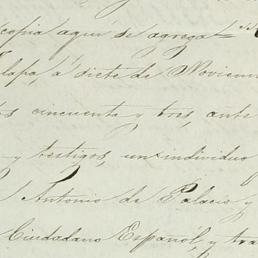 copia aqui se agrega
lapa, á siete de Noviem
os cincuenta y tres, ante
y testigos, un individuo
Antonio de Palacio y
Ciudadano Español, y tra